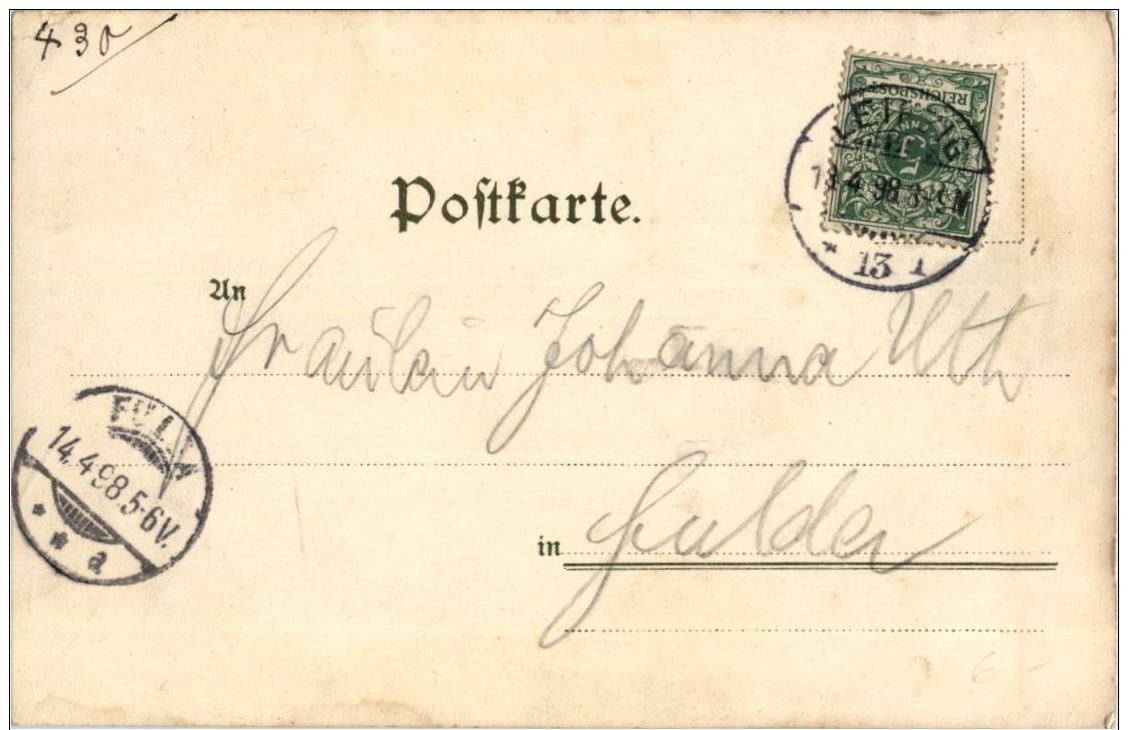 430
REICHSPOST
5
LEIPZIG
13.4.98 8-9N
* 13 1
Postkarte.
An
Fräulein Johanna Uth
FULDA
14.4.98.5-6V.
* * a
in Fulda
6-